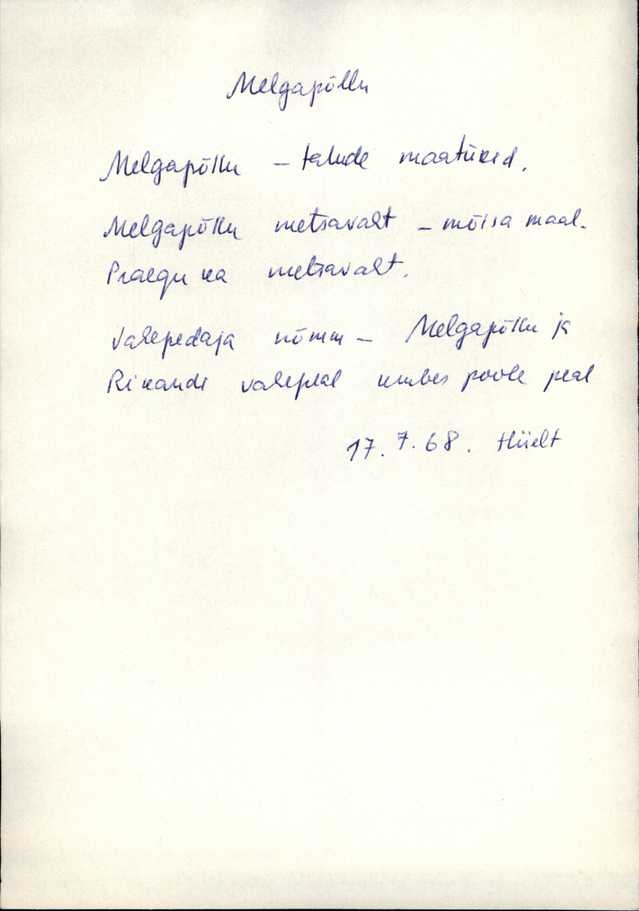 Melgapõllu
Melgapõllu - talude maatükid.
Melgapõllu metsavaht - mõisa maal.
Praegu ka metsavaht.
Vahepedaja nõmm - Melgapõllu ja
Rikandi vahepeal umbes poole peal
17.7.68.